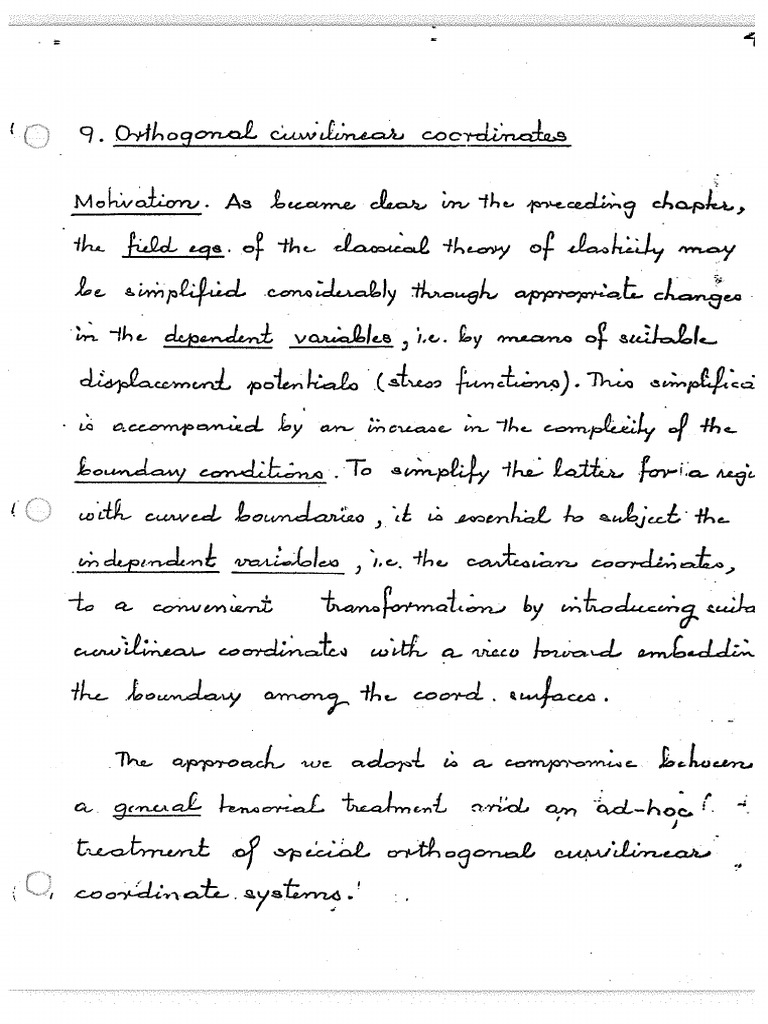 4
9. Orthogonal curvilinear coordinates
Motivation. As became clear in the preceding chapter,
the field eqs. of the classical theory of elasticity may
be simplified considerably through appropriate changes
in the dependent variables, i.e. by means of suitable
displacement potentials (stress functions). This simplifica
is accompanied by an increase in the complexity of the
boundary conditions. To simplify the latter for a regi
with curved boundaries, it is essential to subject the
independent variables, i.e. the cartesian coordinates,
to a convenient transformation by introducing suita
curvilinear coordinates with a view toward embeddin
the boundary among the coord. surfaces.
The approach we adopt is a compromise between
a general tensorial treatment and an ad-hoc
treatment of special orthogonal curvilinear
coordinate systems.